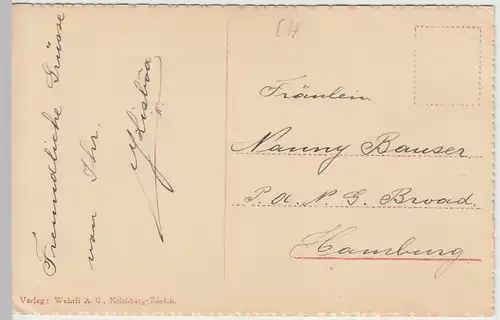 Freundliche Grüsse
von Ihr.
Lisbôa
CH
Fräulein
Nanny Bauser
P. A. N. G. Broad.
Hamburg
Verlag: Wehrli A. G., Kilchberg-Zürich.